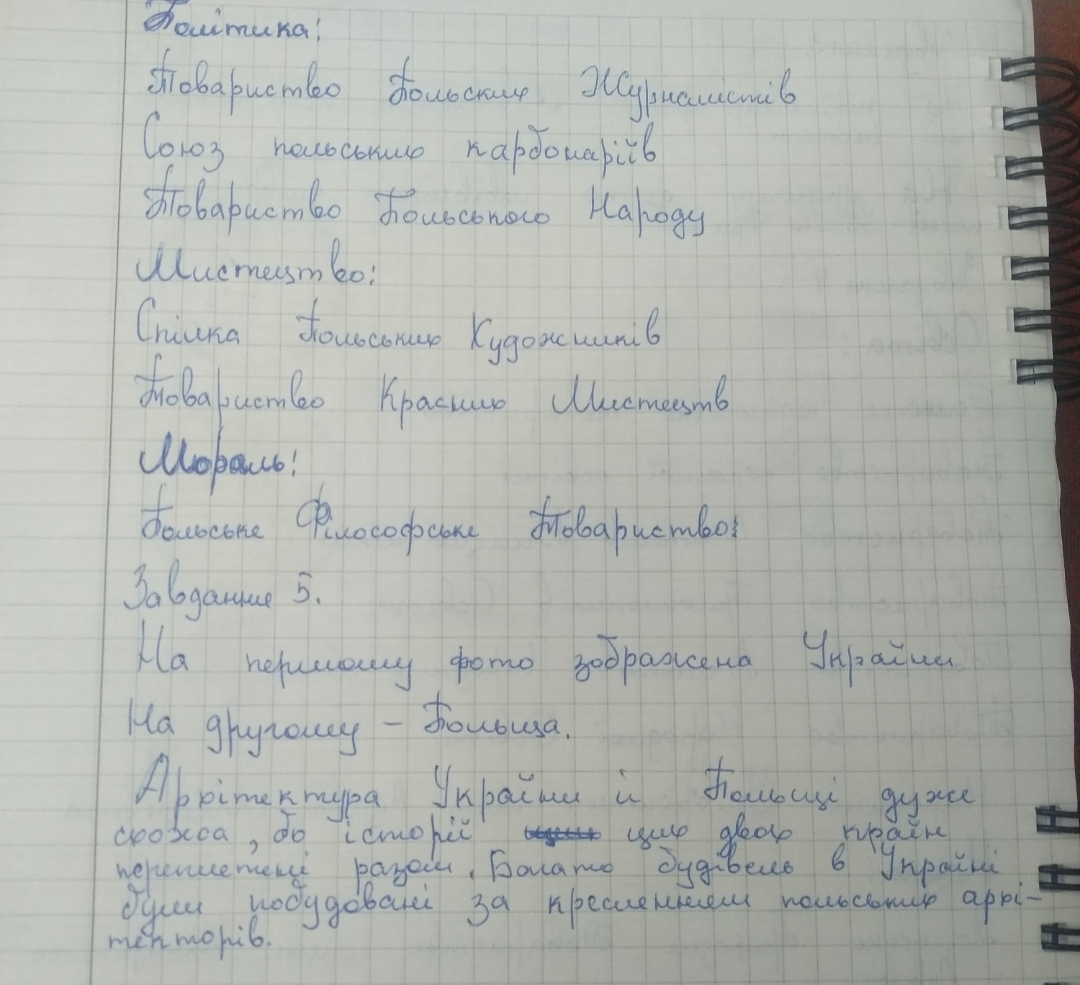 Політика:
Товариство Польских Журналістів
Союз польських карбонаріїв
Товариство Польського Народу
Мистецтво:
Спілка Польських Художників
Товариство Красних Мистецтв
Мораль:
Польське Філософське Товариство:
Завдание 5.
На першому фото зображена Україна
На другому – Польща.
Архітектура України й Польщі дуже
схожа, бо історії цих двох країн
переплетені разом. Багато будівель в Україні
були побудовані за кресленнем польських архі-
текторів.